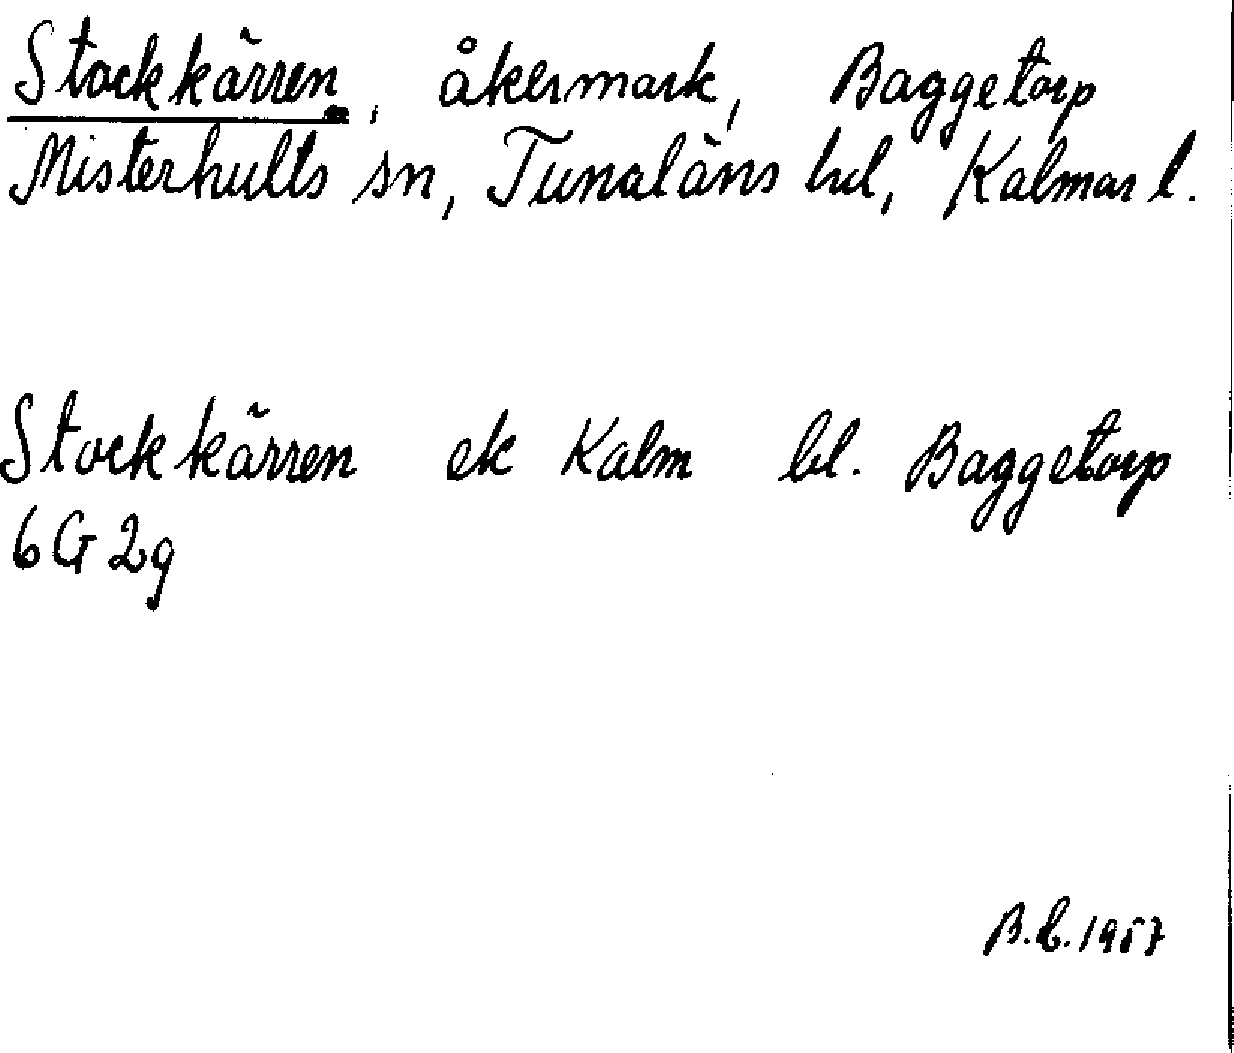 Stockkärren, åkermark, Baggetorp
Misterhults sn, Tunaläns hd, Kalmar l.
Stockkärren ek Kalm bl. Baggetorp
6G2g
1957